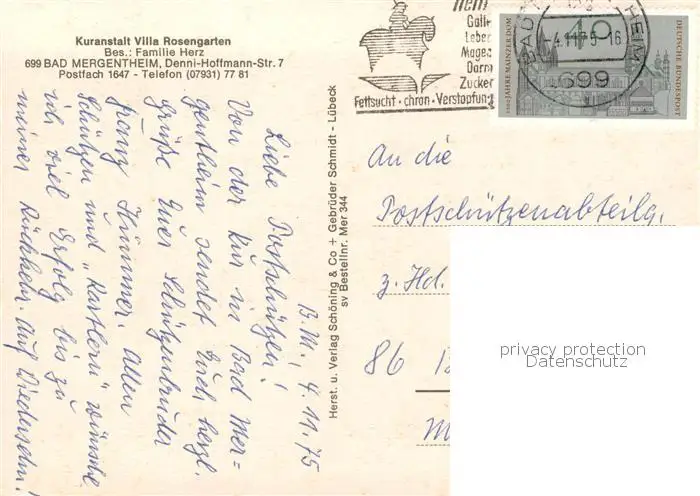 Kuranstalt Villa Rosengarten
Bes.: Familie Herz
699 BAD MERGENTHEIM, Denni-Hoffmann-Str. 7
Postfach 1647 - Telefon (07931) 77 81
B.M., 4.11.75
Liebe Postschützen!
Von der Kur in Bad Mer=
gentheim sendet Euch herzl.
Grüße Euer Schützenbruder
Hümmer. Allen
Schützen und "Kartlern" wünsche
ich viel Erfolg bis zu
meiner Rückkehr. Auf Wiedersehn!
Herst. u. Verlag Schöning & Co + Gebrüder Schmidt - Lübeck
sv Bestellnr. Mer 344
Galle
Leber
Magen
Darm
Zucker
Fettsucht · chron · Verstopfung
BAD HEIM
-4.11.75-16
6990
40
1000 JAHRE MAINZER DOM
DEUTSCHE BUNDESPOST
An die
Postschützenabteilg.
z. Hd.
86
privacy protection
Datenschutz